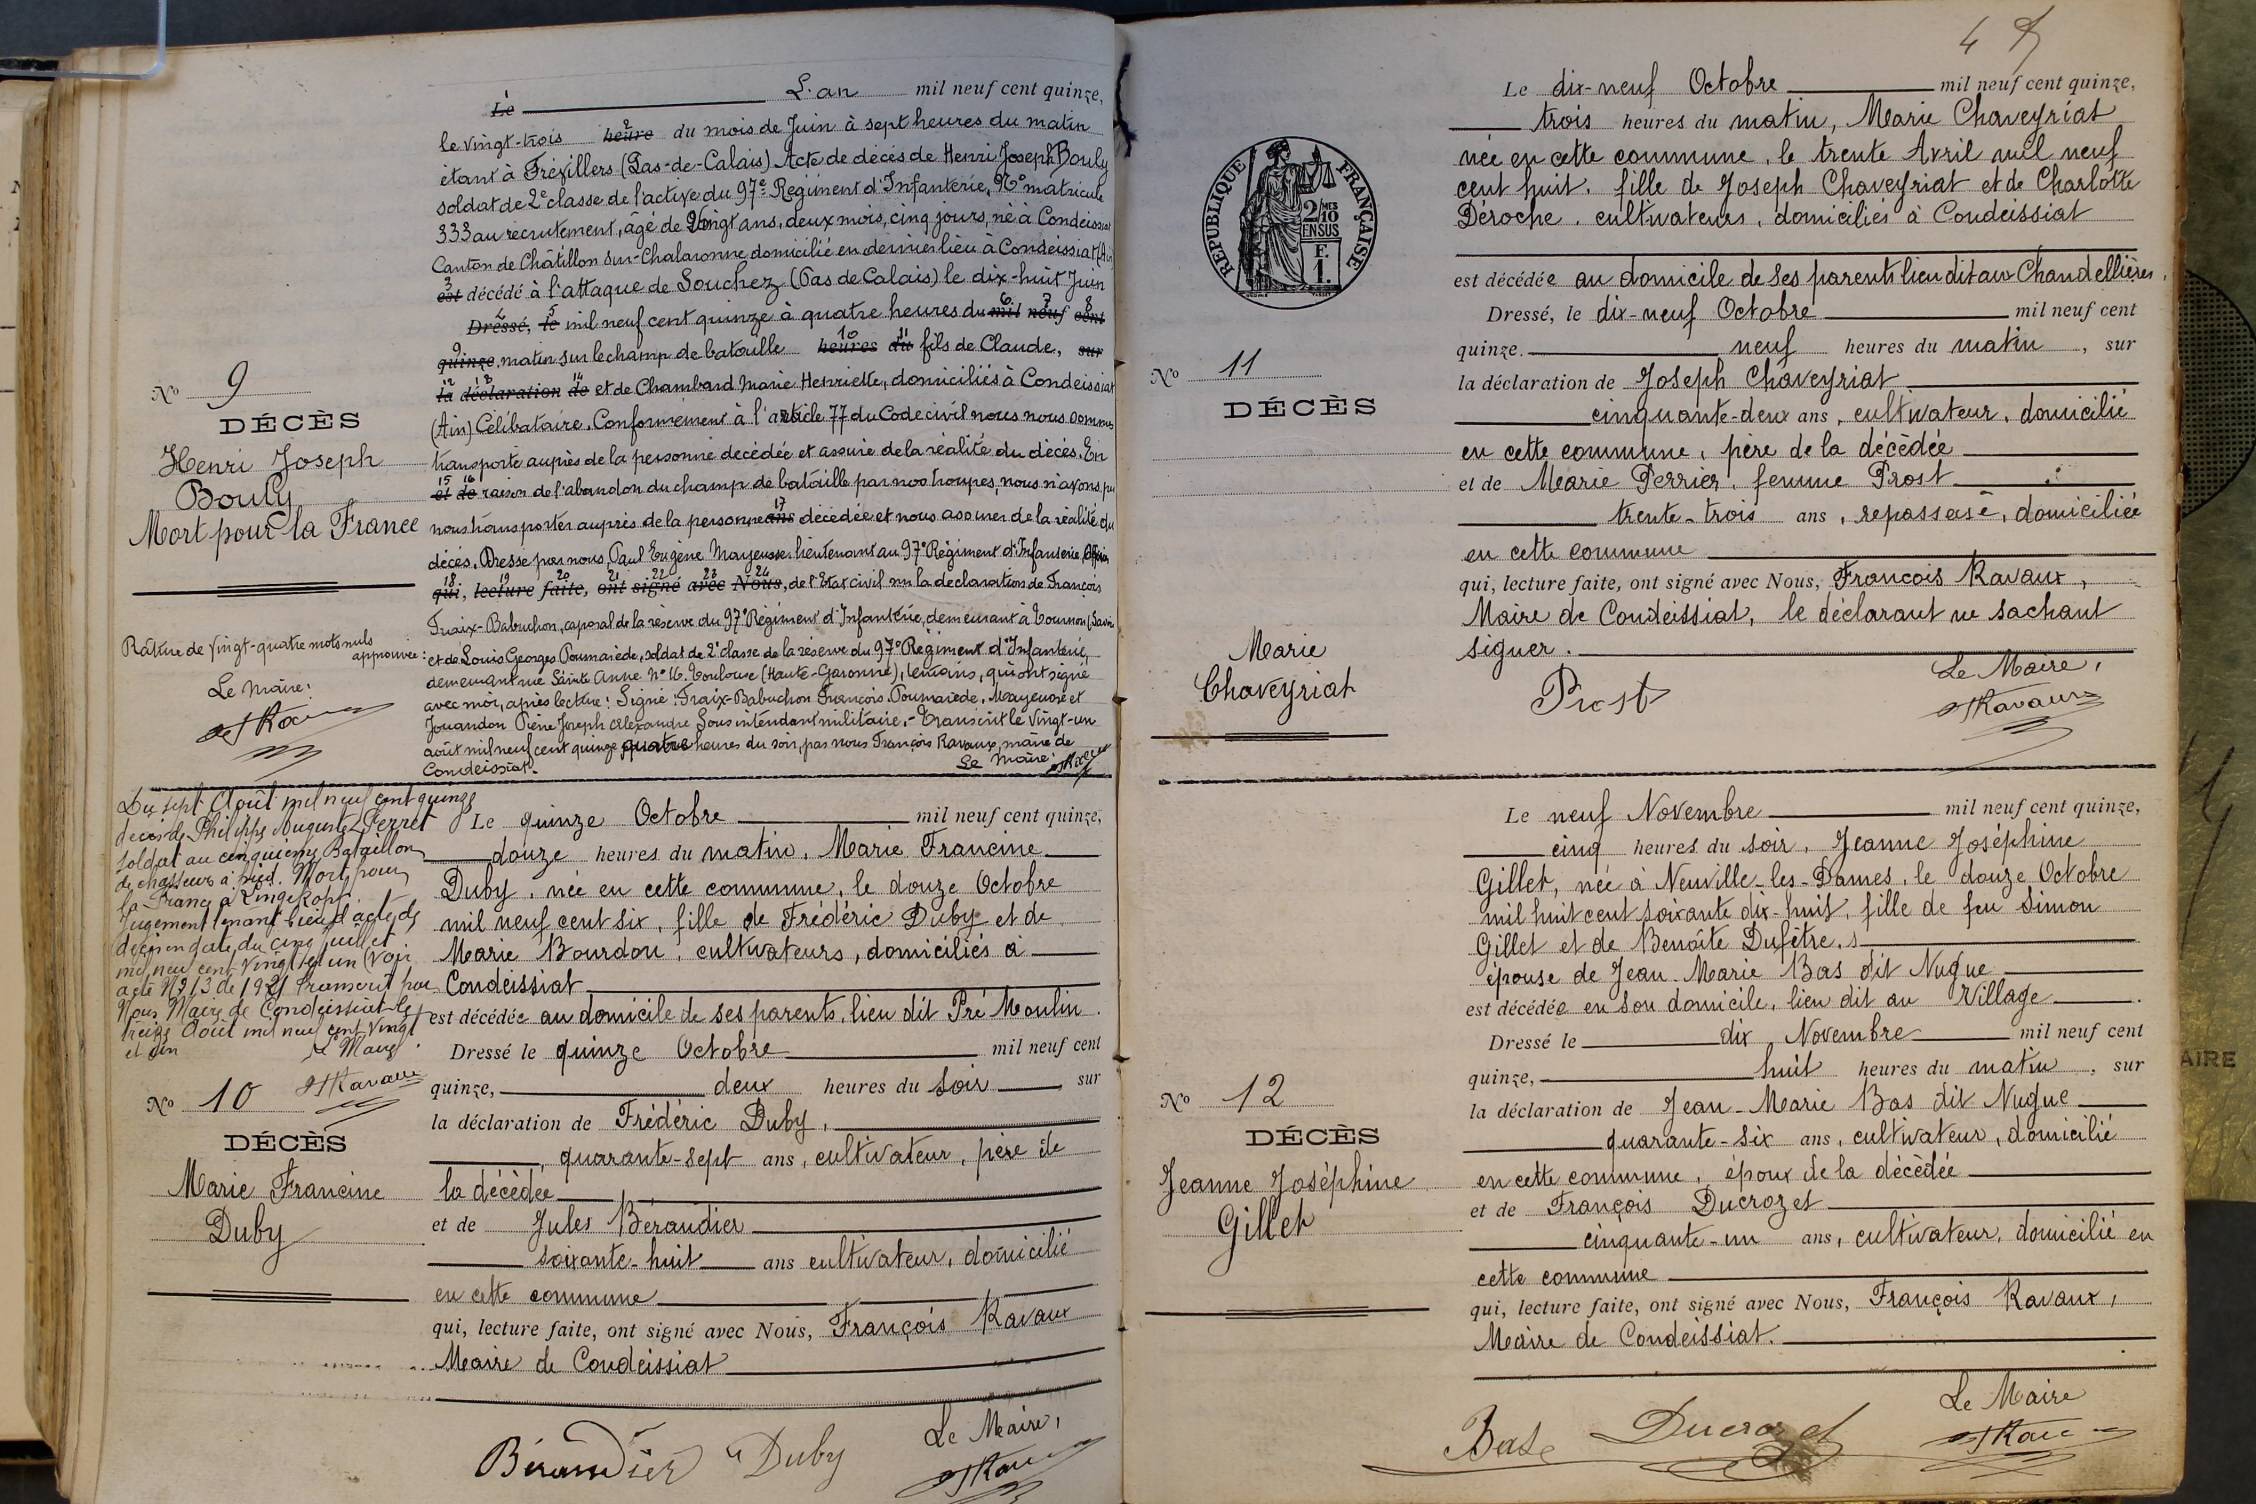 Le L'an mil neuf cent quinze,
le vingt-trois heure du mois de Juin à sept heures du matin
étant à Frévillers (Pas-de-Calais) Acte de décés de Henri Joseph Bouly
soldat de 2e classe de l'active du 97e Regiment d'Infanterie, No matricule
333 au recrutement, âgé de vingt ans, deux mois, cinq jours, né à Condeissiat
Canton de Châtillon sur-Chalaronne domicilié en dernier lieu à Condeissiat (Ain)
3 est décédé à l'attaque de Souchez (Pas de Calais) le dix-huit Juin
Dressé, le mil neuf cent quinze à quatre heures du mil neuf cent
quinze matin sur le champ de bataille heures du fils de Claude, sur
la déclaration de et de Chambard Marie Henriette, domiciliés à Condeissiat
(Ain) Célibataire. Conformément à l'article 77 du Code civil nous nous sommes
transporté auprès de la personne décédée et assuré de la réalité du décès. En
et de raison de l'abandon du champ de bataille par nos troupes, nous n'avons pu
nous transporter auprès de la personne ans décédée et nous assurer de la réalité du
décés. Dressé par nous, Paul Eugène Mayeusse, lieutenant au 97e Régiment d'Infanterie, Officier
qui, lecture faite, ont signé avec Nous, de l'Etat civil sur la déclaration de François
Fraix-Babuchon, caporal de la réserve du 97e Régiment d'Infanterie, demeurant à Tournon (Savoie
et de Louis Georges Poumarède, soldat de 2e classe de la réserve du 97e Régiment d'Infanterie,
demeurant rue Sainte Anne No 16. Toulouse (Haute-Garonne), témoins, qui ont signé
avec moi, après lecture: Signé: Fraix-Babuchon François. Poumarède, Mayeusse et
Jouandon Pierre Joseph Alexandre Sous intendant militaire. - Transcrit le vingt-un
août mil neuf cent quinze quatre heures du soir, par nous François Ravaux, maire de
Condeissiat.
Le Maire
No 9
DÉCÈS
Henri Joseph
Bouly
Mort pour la France
Râture de vingt-quatre mots nuls
approuvée:
Le Maire:
Du sept Août mil neuf cent quinze
décès de Philippe Auguste Perret
soldat au cinquième Bataillon
de chasseurs à pied. Mort pour
la France à Lingekopf.
Jugement tenant lieu d'acte de
décès en date du cinq juillet
mil neuf cent vingt et un (voir
acte No 13 de 1921 transcrit par
Nous Maire de Condeissiat le
treize Août mil neuf cent vingt
et un
Le Maire
Ravaux
No 10
DÉCÈS
Marie Francine
Duby
Le quinze Octobre mil neuf cent quinze,
douze heures du matin, Marie Francine
Duby, née en cette commune, le douze Octobre
mil neuf cent six, fille de Frédéric Duby et de
Marie Bourdon, cultivateurs, domiciliés à
Condeissiat
est décédée au domicile de ses parents, lieu dit Pré Moulin.
Dressé le quinze Octobre mil neuf cent
quinze, deux heures du soir sur
la déclaration de Frédéric Duby,
quarante-sept ans, cultivateur, père de
la décédée
et de Jules Béraudier
soixante-huit ans cultivateur, domicilié
en cette commune
qui, lecture faite, ont signé avec Nous, François Ravaux
Maire de Condeissiat
Béraudier Duby
Le Maire,
4
REPUBLIQUE FRANÇAISE
2/10 MES
EN SUS
F.
1.
Le dix-neuf Octobre mil neuf cent quinze,
trois heures du matin, Marie Chaveyriat
née en cette commune, le trente Avril mil neuf
cent huit, fille de Joseph Chaveyriat et de Charlotte
Déroche, cultivateurs, domiciliés à Condeissiat
est décédée au domicile de ses parents lieu dit aux Chandellières.
Dressé, le dix-neuf Octobre mil neuf cent
quinze. neuf heures du matin, sur
la déclaration de Joseph Chaveyriat
cinquante-deux ans, cultivateur, domicilié
en cette commune, père de la décédée
et de Marie Perrier, femme Prost
trente-trois ans, repasseuse, domiciliée
en cette commune
qui, lecture faite, ont signé avec Nous, François Ravaux,
Maire de Condeissiat, le déclarant ne sachant
signer.
Prost
Le Maire,
Ravaux
No 11
DÉCÈS
Marie
Chaveyriat
Le neuf Novembre mil neuf cent quinze,
cinq heures du soir, Jeanne Joséphine
Gillet, née à Neuville-les-Dames, le douze Octobre
mil huit cent soixante dix-huit, fille de feu Simon
Gillet et de Benoîte Dufêtre,
épouse de Jean-Marie Bas dit Nugue
est décédée en son domicile, lieu dit au Village.
Dressé le dix Novembre mil neuf cent
quinze, huit heures du matin, sur
la déclaration de Jean-Marie Bas dit Nugue
quarante-six ans, cultivateur, domicilié
en cette commune, époux de la décédée
et de François Ducrozet
cinquante-un ans, cultivateur, domicilié en
cette commune
qui, lecture faite, ont signé avec Nous, François Ravaux,
Maire de Condeissiat.
Bas Ducrozet
Le Maire
No 12
DÉCÈS
Jeanne Joséphine
Gillet
AIRE